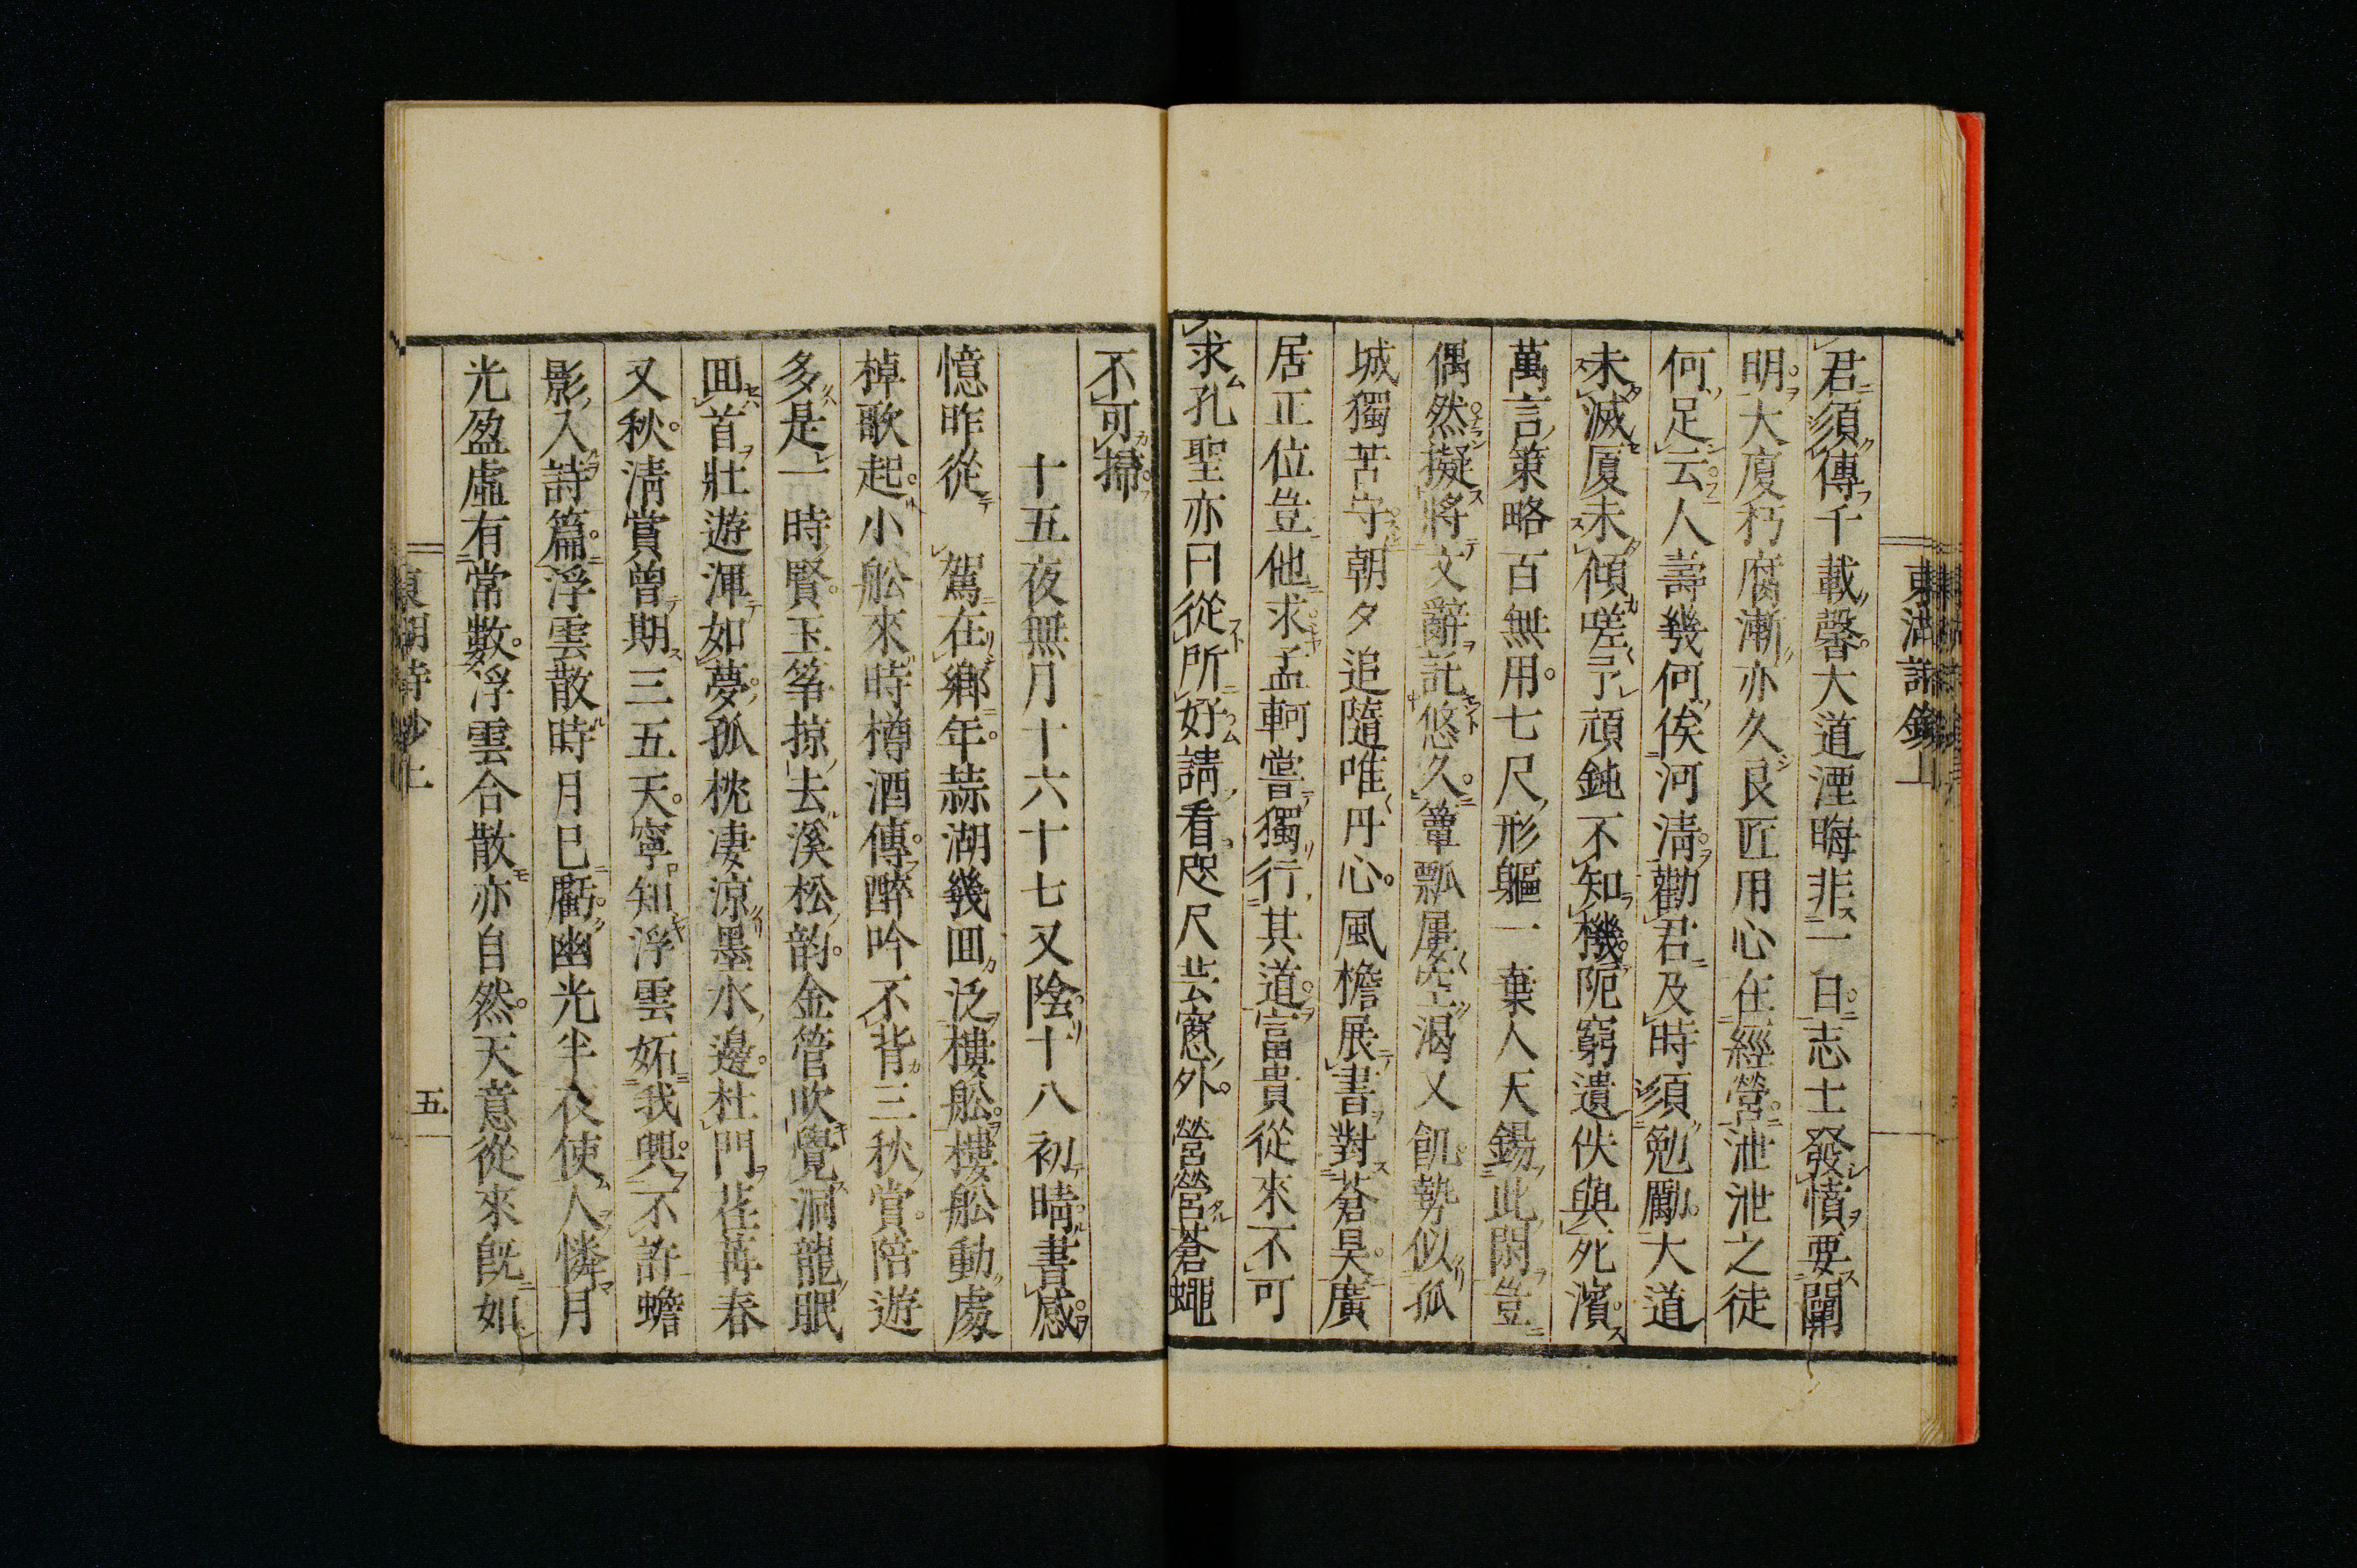 東湖詩鈔上
君須傳千載馨大道湮晦非一日志士發憤要闡
明大廈朽腐漸亦久良匠用心在經營泄泄之徒
何足云人壽幾何俟河淸勸君及時須勉勵大道
未滅厦未傾嗟予頑鈍不知機阨窮遺佚與死濱
萬言策略百無用七尺形軀一棄人天錫此閑豈
偶然擬將文辭託悠久簞瓢屢空渴又飢勢似孤
城獨苦守朝夕追隨唯丹心風檐展書對蒼昊廣
居正位豈他求孟軻嘗獨行其道富貴從來不可
求孔聖亦曰從所好請看咫尺芸窻外營營蒼蠅
不可掃
十五夜無月十六十七又陰十八初晴書感
憶昨從 駕在鄕年蒜湖幾囬泛樓舩樓舩動處
棹歌起小舩來時樽酒傳醉吟不背三秋賞陪遊
多是一時賢玉筝掠去溪松韵金管吹覺洞龍眠
囬首壯遊渾如夢孤枕凄凉墨水邊杜門荏苒春
又秋淸賞曾期三五天寧知浮雲妬我興不許蟾
影入詩篇浮雲散時月已虧幽光半夜使人憐月
光盈虛有常數浮雲合散亦自然天意從來旣如
東湖詩鈔上
五